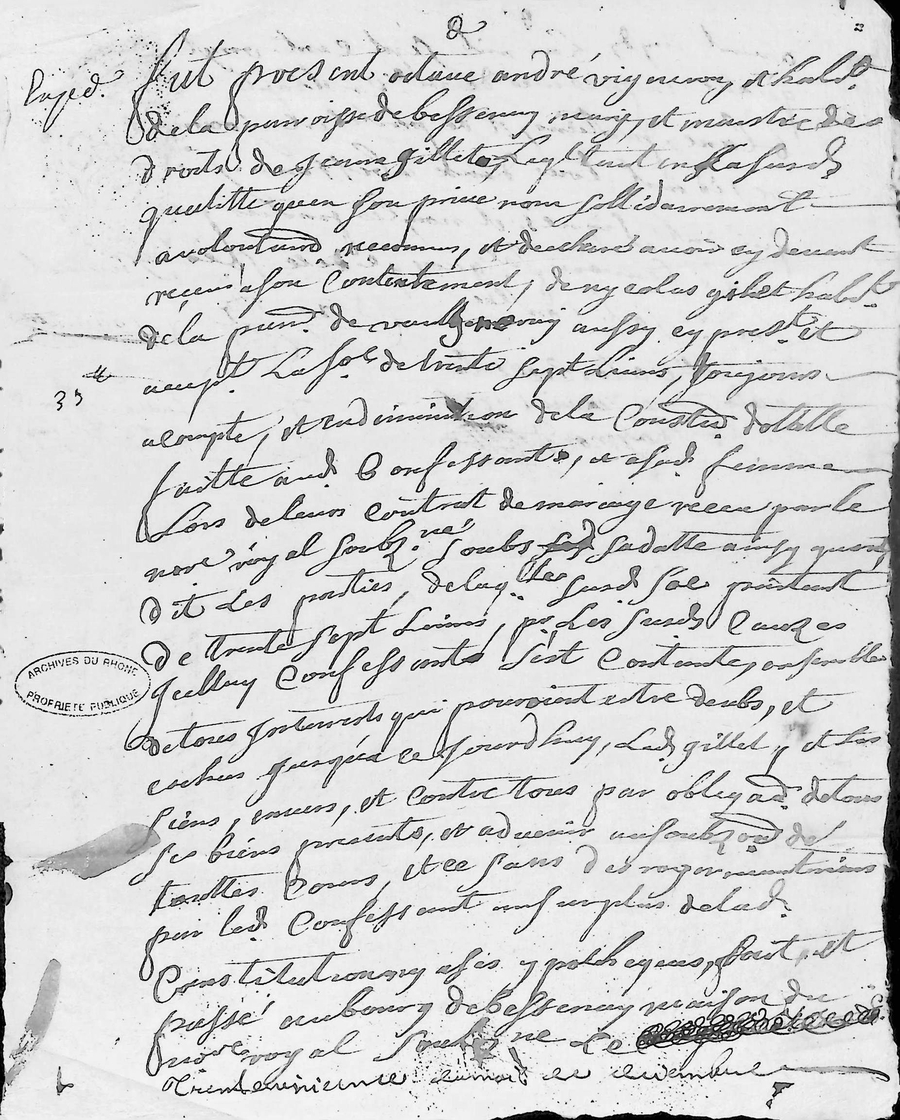 Exped.
fut present octave andré vigneron, et habit
de la parroisse de bessenay, mary, et maistre des
droits de Jeanne gillet, Lequel tant en sa susd
qualitte quen son prive nom sollidairement
a volontaire reconnu, et declaré avoir cy devant
reçeu a son Contentement, de nycolas gillet habit
de la parr. de aussy cy prest et
accept La so.e de trente sept Livres, toujours
37 tt
acompte, et en diminution de la Constion dottalle
faitte aud Confessant, et a sad femme
Lors de leur Contrat de mariage receu par le
nore royal soubz.né soubs sa datte ainsy quont
dit Les parties, de laq.lle susd so.e présent
de trente sept Livres, pr Les susd Causes
Icelluy Confessant s'est Contenté, ensemble
de tous Interrests qui pouroient estre deubs, et
escheus jusquà ce Jourdhuy, Led gillet, et les
siens, envers, et Contre tous par obligaon de tous
ses biens presents, et advenir aux soubzon de
touttes Cours, et ce sans desroger
par led Confessant au surplus de lad
Constitutionny a ses ypotheques, fait, et
passé au bourg de bessenay maison du
nore royal Soubz.né Le
du mois de decembre
ARCHIVES DU RHONE
PROPRIETE PUBLIQUE